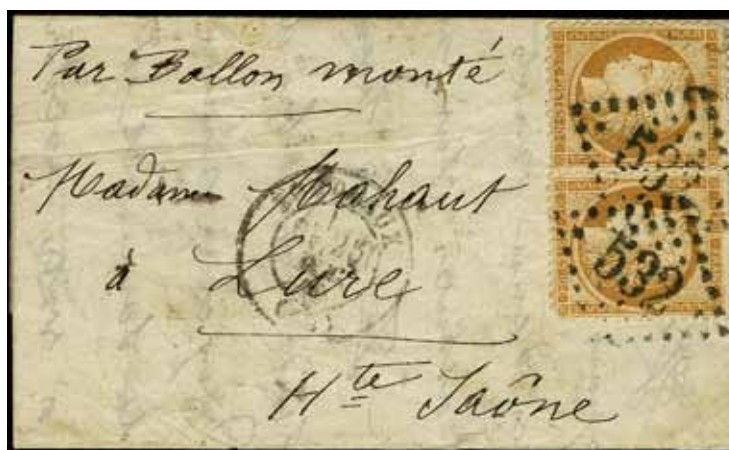 Par Ballon monté
Madame Mahaut
à Lure
Hte Saône
532
532